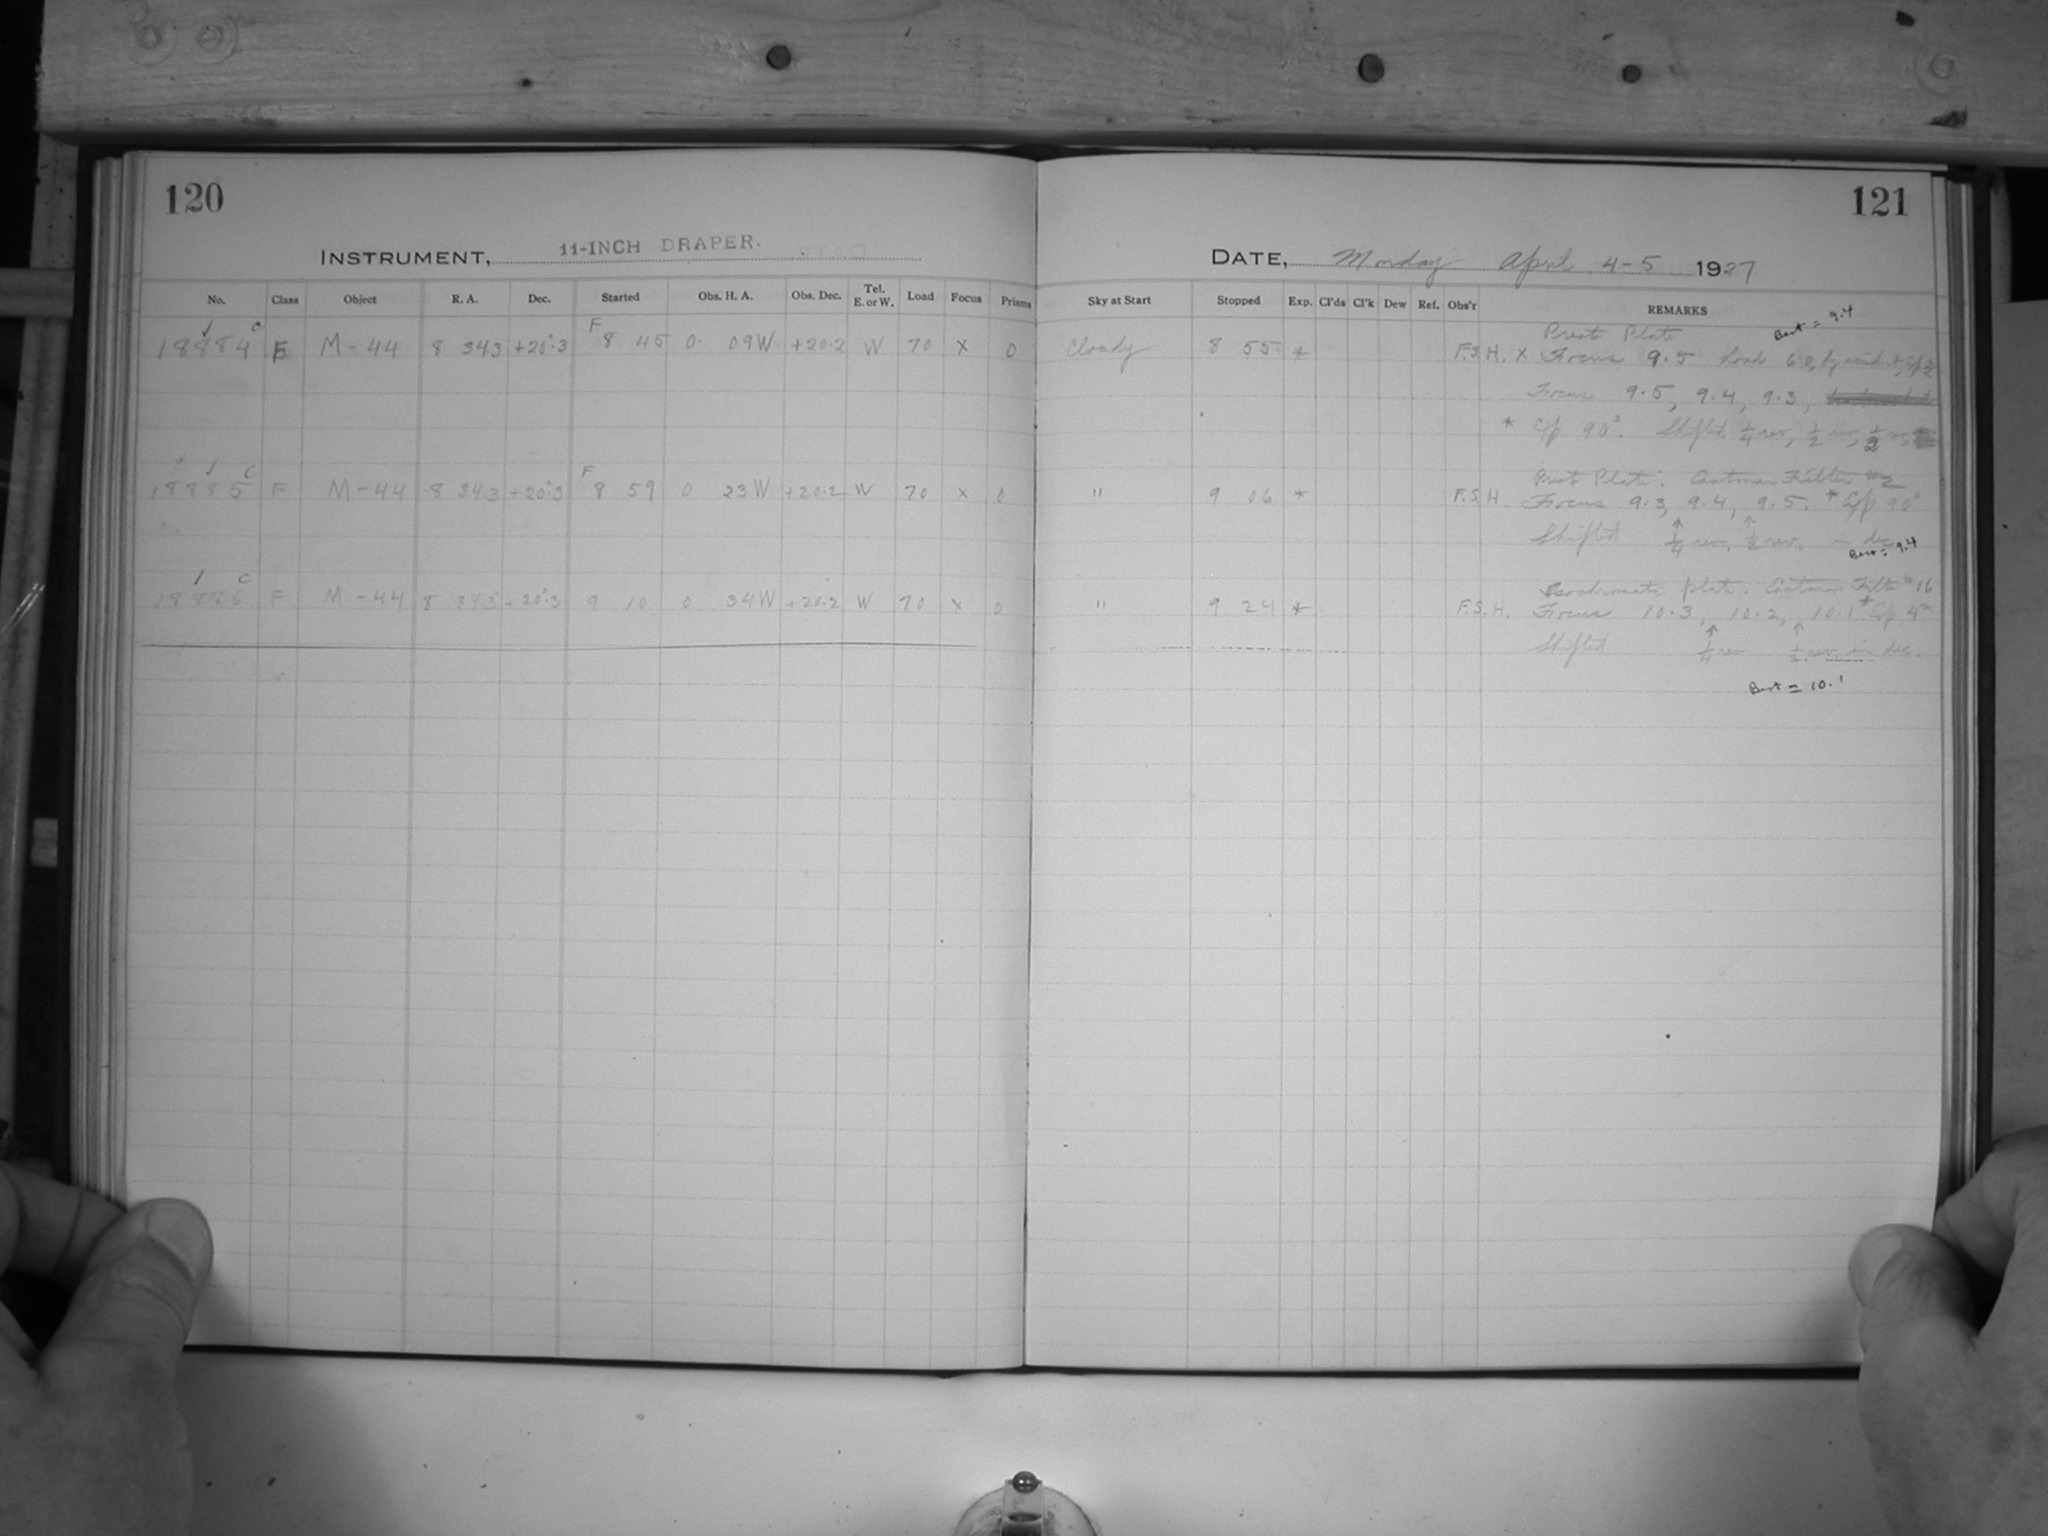 120
INSTRUMENT, 11-INCH DRAPER.
No. Class Object R. A. Dec. Started Obs. H. A. Obs. Dec. Tel. E. or W. Load Focus Prisms
18884 c F M-44 8 34.3 +20°.3 F 8 45 0 09W +20.2 W 70 X 0
18885 c F M-44 8 34.3 +20°.3 F 8 59 0 23W +20.2 W 70 X 0
18886 c F M-44 8 34.3 +20°.3 9 10 0 34W +20.2 W 70 X 0
121
DATE, Monday April 4-5 1927
Sky at Start Stopped Exp. Cl'ds Cl'k Dew Ref. Obs'r REMARKS
Best = 9.4
Presto Plate
Cloudy 8 55 * F.S.H. X Focus 9.5 load 60, by accident,
Focus 9.5, 9.4, 9.3,
* Exp 90s. Shifted 1/4 rev, 1/2 rev, 1/2 rev,
Presto Plate. Eastman Filter #2
" 9 06 * F.S.H. Focus 9.3, 9.4, 9.5. * Exp 90s
Shifted 1/4 rev. 1/2 rev. in dec.
Best = 9.4
Isochromatic plate. Eastman Filter #16
" 9 24 * F.S.H. Focus 10.3, 10.2, 10.1 * Exp 4m
Shifted 1/4 rev 1/2 rev. in dec.
Best = 10.1